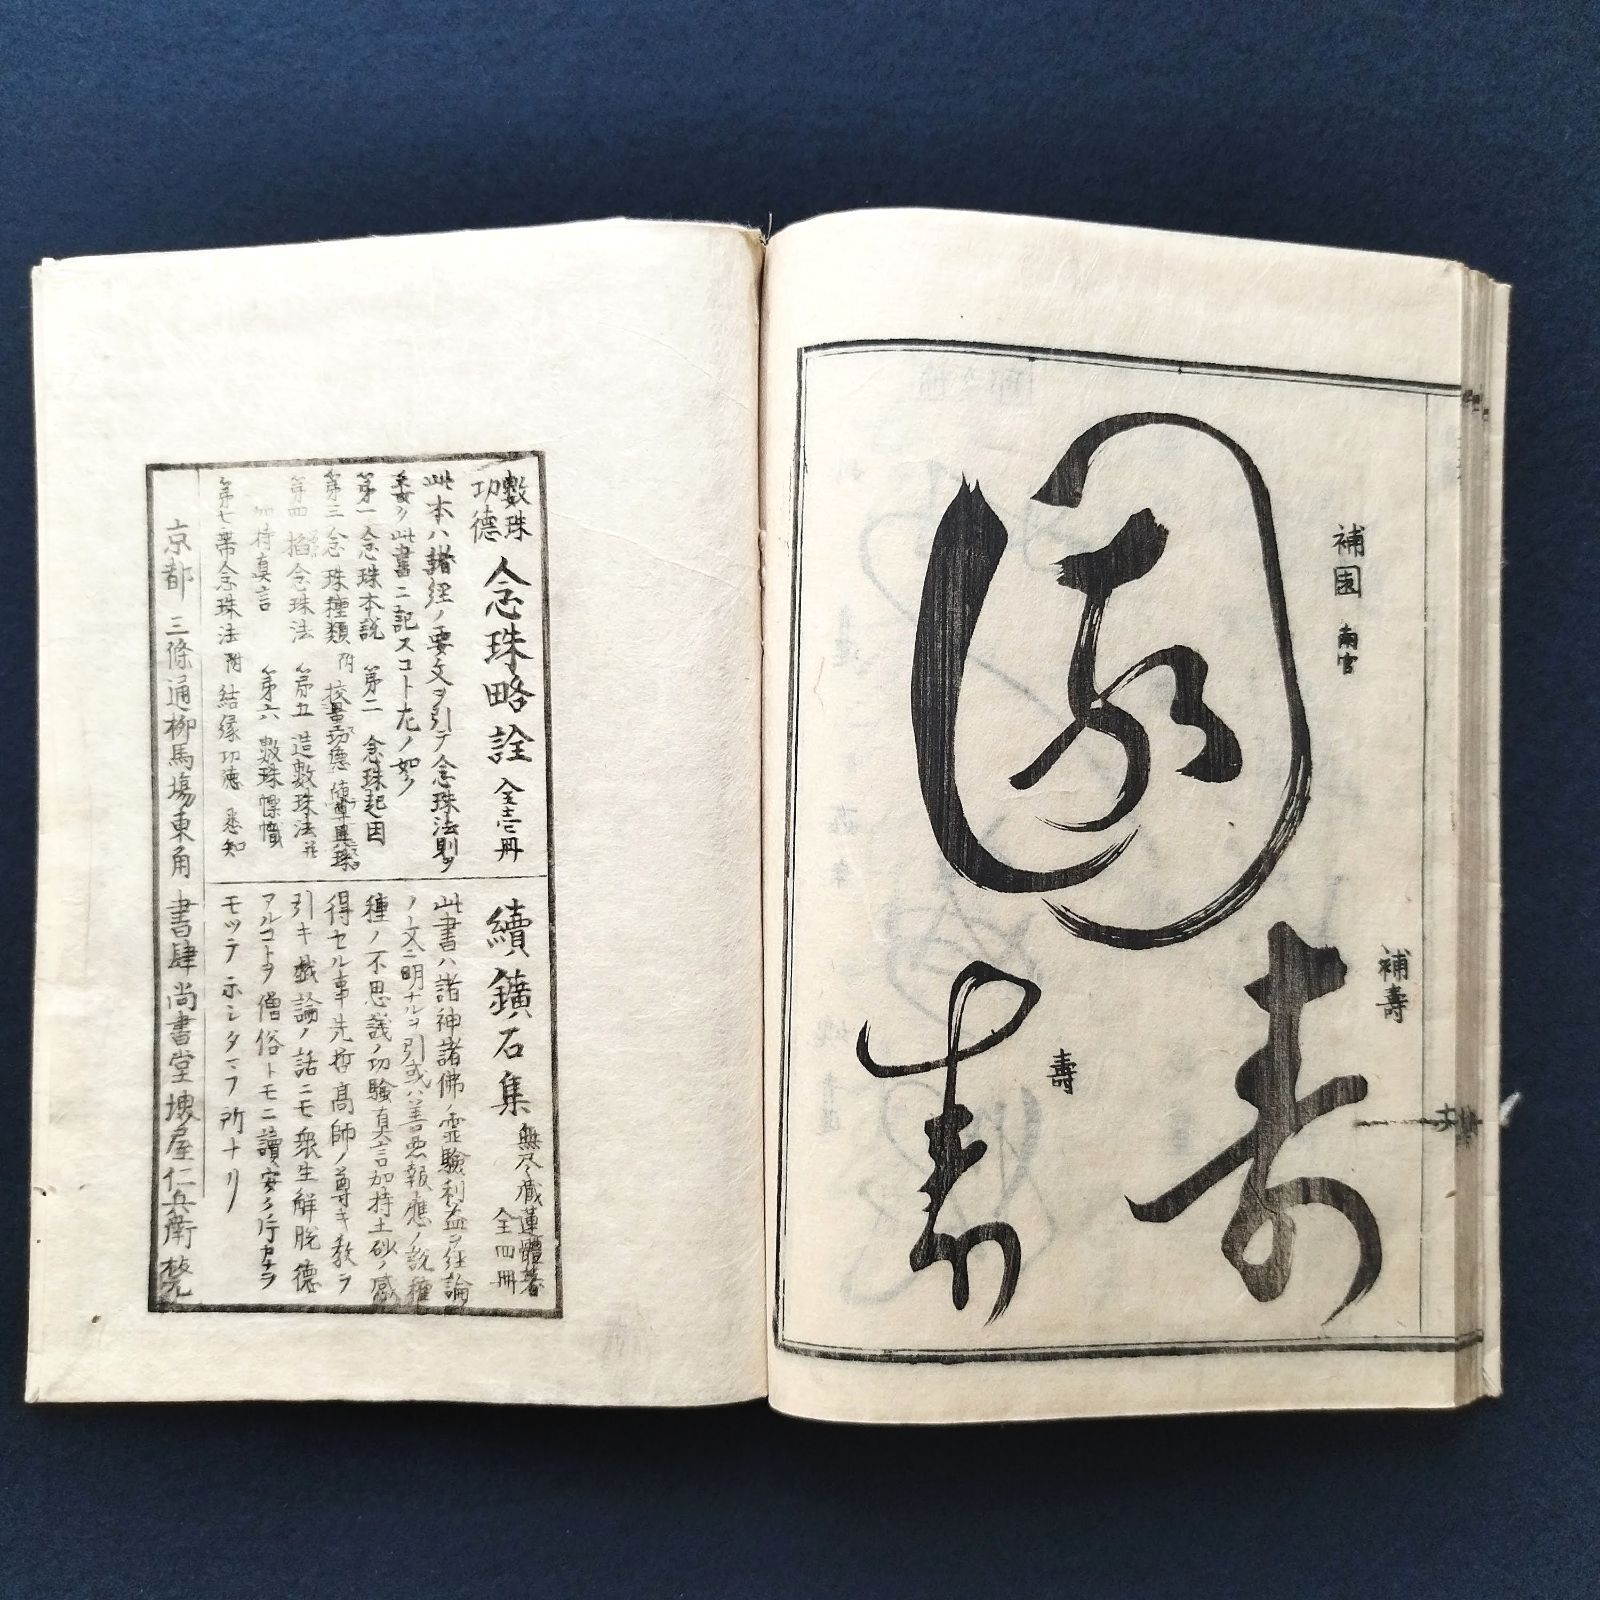 補園 南宮
園
補壽
壽
壽
壽
數珠
功德
念珠略詮 全壱冊
此本ハ諸経ノ要文ヲ引テ念珠法則ヲ
委ク此書ニ記スコト左ノ如ク
第一 念珠本説 第二 念珠起因
第三 念珠種類 附 校量功德
第四 掐念珠法 第五 造數珠法並
加持真言 第六 數珠幖幟
第七 帯念珠法 附 結縁功德 悉知
續鑛石集 無尽蔵蓮體著
全四冊
此書ハ諸神諸佛ノ霊驗利益ヲ経論
ノ文ニ明ナルヲ引或ハ善悪報應ノ説種
種ノ不思議ノ功驗真言加持土砂ノ感
得セル事先哲高師ノ尊キ教ヲ
引キ戯論ノ話ニモ衆生解脱德
アルコトヲ僧俗トモニ讀安ク行
モツテ示シタマフ所ナリ
京都 三條通柳馬塲東角 書肆尚書堂堺屋仁兵衛